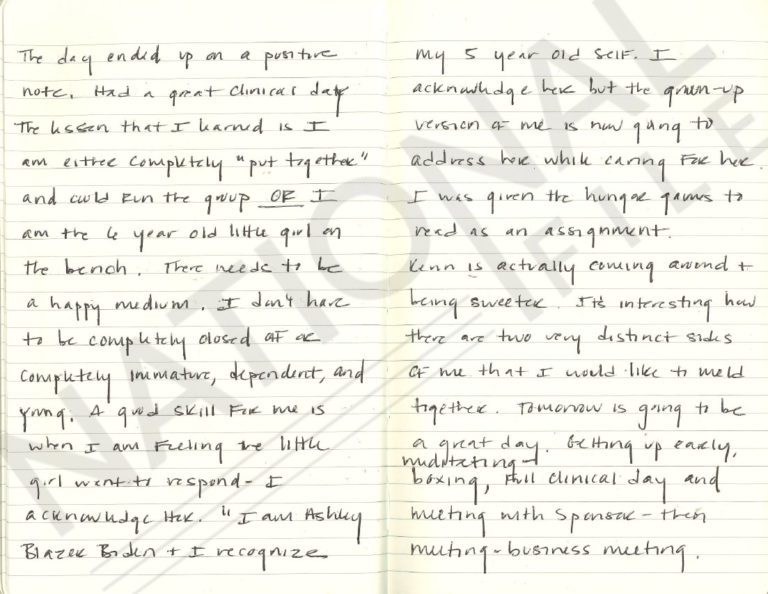 The day ended up on a positive
note. Had a great clinical day
The lesson that I learned is I
am either completely "put together"
and could run the group OR I
am the 6 year old little girl on
the bench. There needs to be
a happy medium. I don't have
to be completely closed of or
completely immature, dependent, and
young. A good skill for me is
when I am feeling the little
girl went to respond - I
acknowledge her. "I am Ashley
Blazer Biden + I recognize
my 5 year old self. I
acknowledge her but the grown-up
version of me is now going to
address her while caring for her.
I was given the hunger games to
read as an assignment.
is actually coming around +
being sweeter. It's interesting how
there are two very distinct sides
of me that I would like to meld
together. Tomorrow is going to be
a great day. Getting up early,
meditating -
boxing, full clinical day and
meeting with sponsor - then
meeting - business meeting.
NATIONAL
FILE